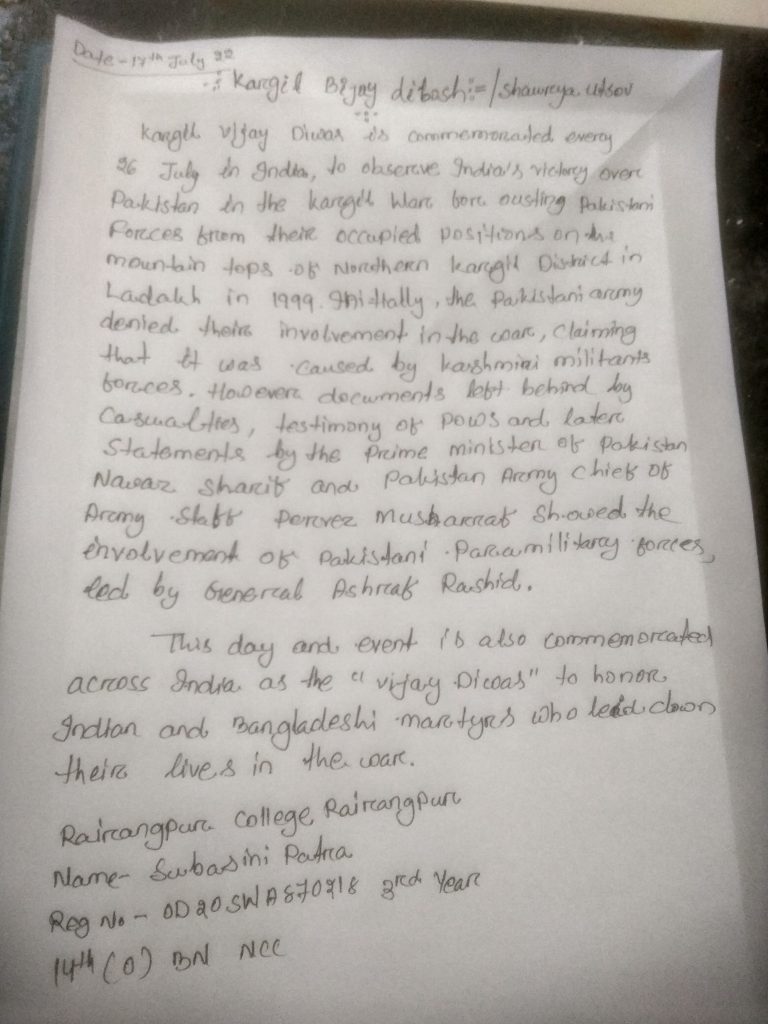 Date - 17th July 22
Kargil Bijay dibash :- / Shaureya Utsov
Kargil vijay Diwas is commemorated every
26 July in India, to observe India's victory over
Pakistan in the kargil War for ousting Pakistani
Forces from their occupied positions on the
mountain tops of Northern Kargil District in
Ladakh in 1999. Initially, the Pakistani army
denied their involvement in the war, claiming
that it was caused by kashmiri militants
forces. However documents left behind by
Casualties, testimony of POWS and later
Statements by the Prime minister of Pakistan
Nawaz Sharif and Pakistan Army Chief of
Army Staff Pervez Musharraf Showed the
involvement of Pakistani Paramilitary forces,
led by General Ashraf Rashid.
This day and event is also commemorated
across India as the "vijay Diwas" to honor
Indian and Bangladeshi martyrs who leid down
their lives in the war.
Rairangpur College, Rairangpur
Name - Subasini Patra
Reg No - OD20SWA870218 3rd Year
14th (O) BN NCC